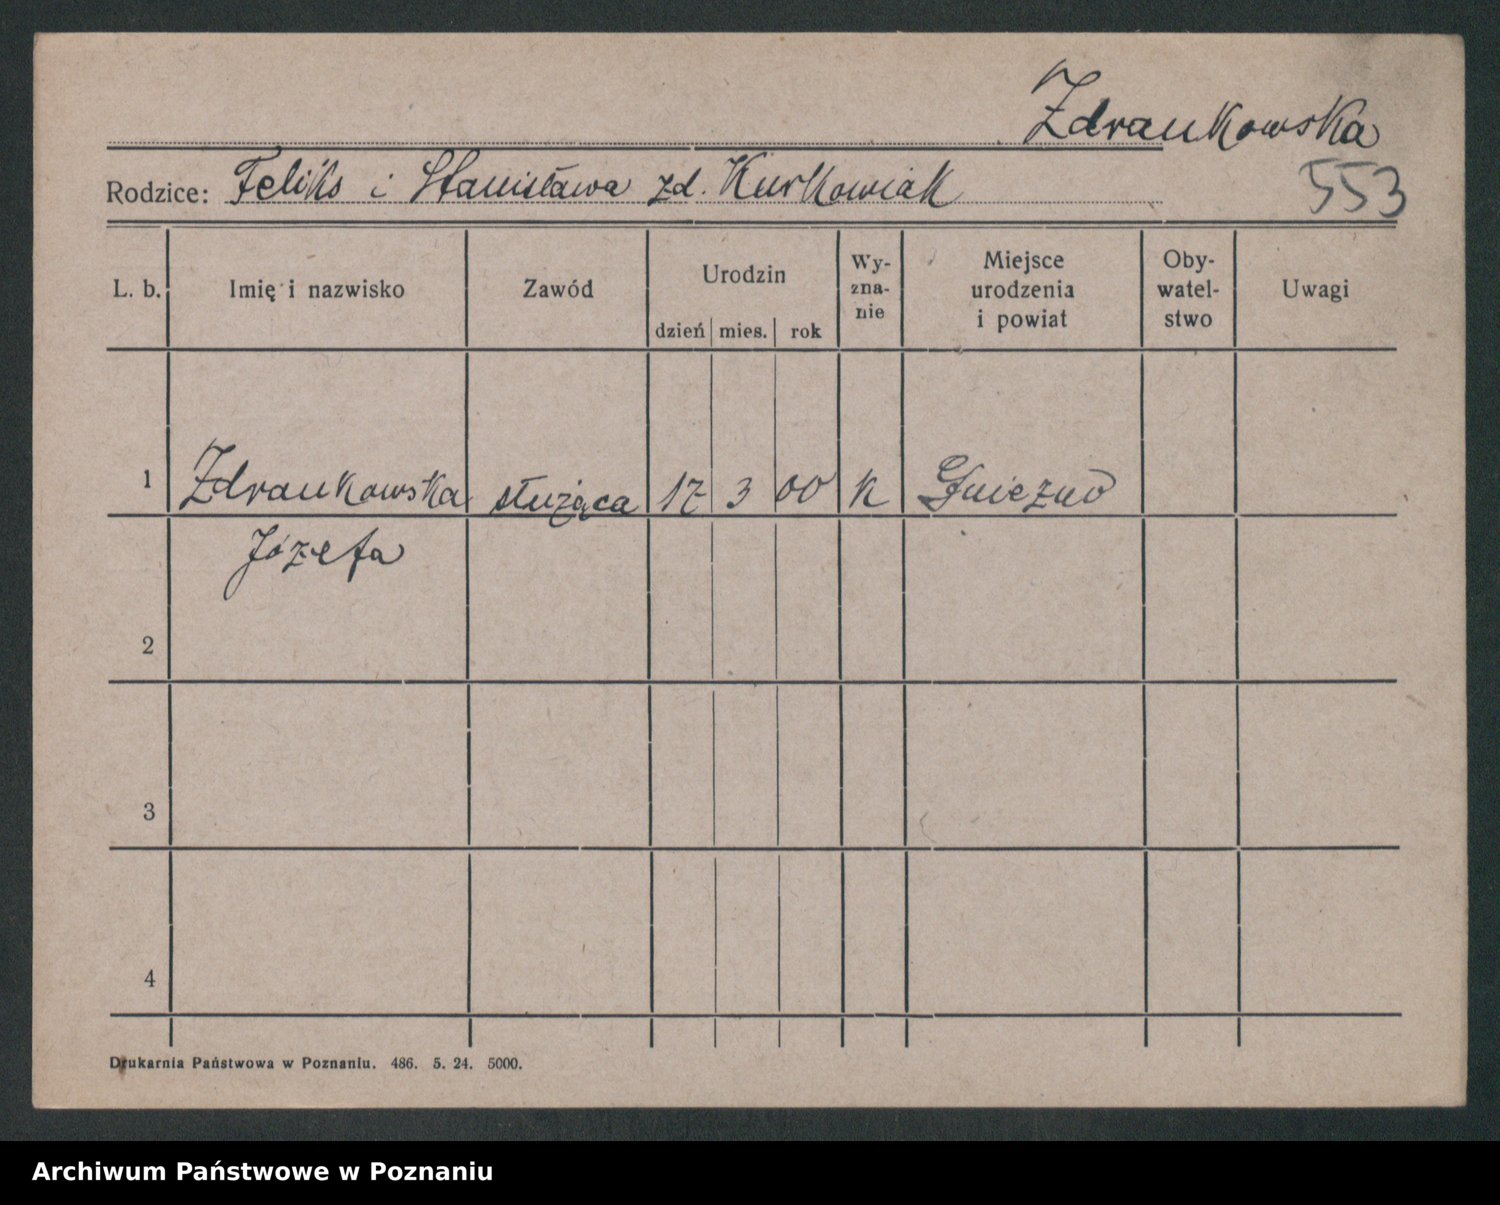 Zdrankowska
Rodzice: Feliks i Stanisława zd. Kurkowiak
553
L. b. Imię i nazwisko Zawód Urodzin dzień mies. rok Wy-
zna-
nie Miejsce
urodzenia
i powiat Oby-
watel-
stwo Uwagi
1 Zdrankowska służąca 17 3 00 k Gniezno
Józefa
2
3
4
Drukarnia Państwowa w Poznaniu. 486. 5. 24. 5000.
Archiwum Państwowe w Poznaniu